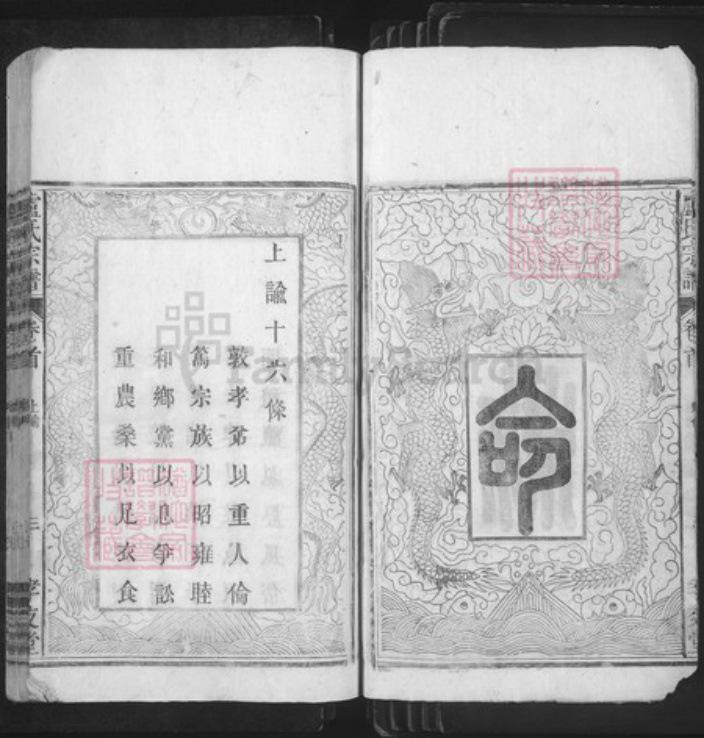 命
上諭十六條
敦孝弟以重人倫
篤宗族以昭雍睦
和鄉黨以息爭訟
重農桑以足衣食
盧氏宗譜
卷首
上諭
三
FamilySearch